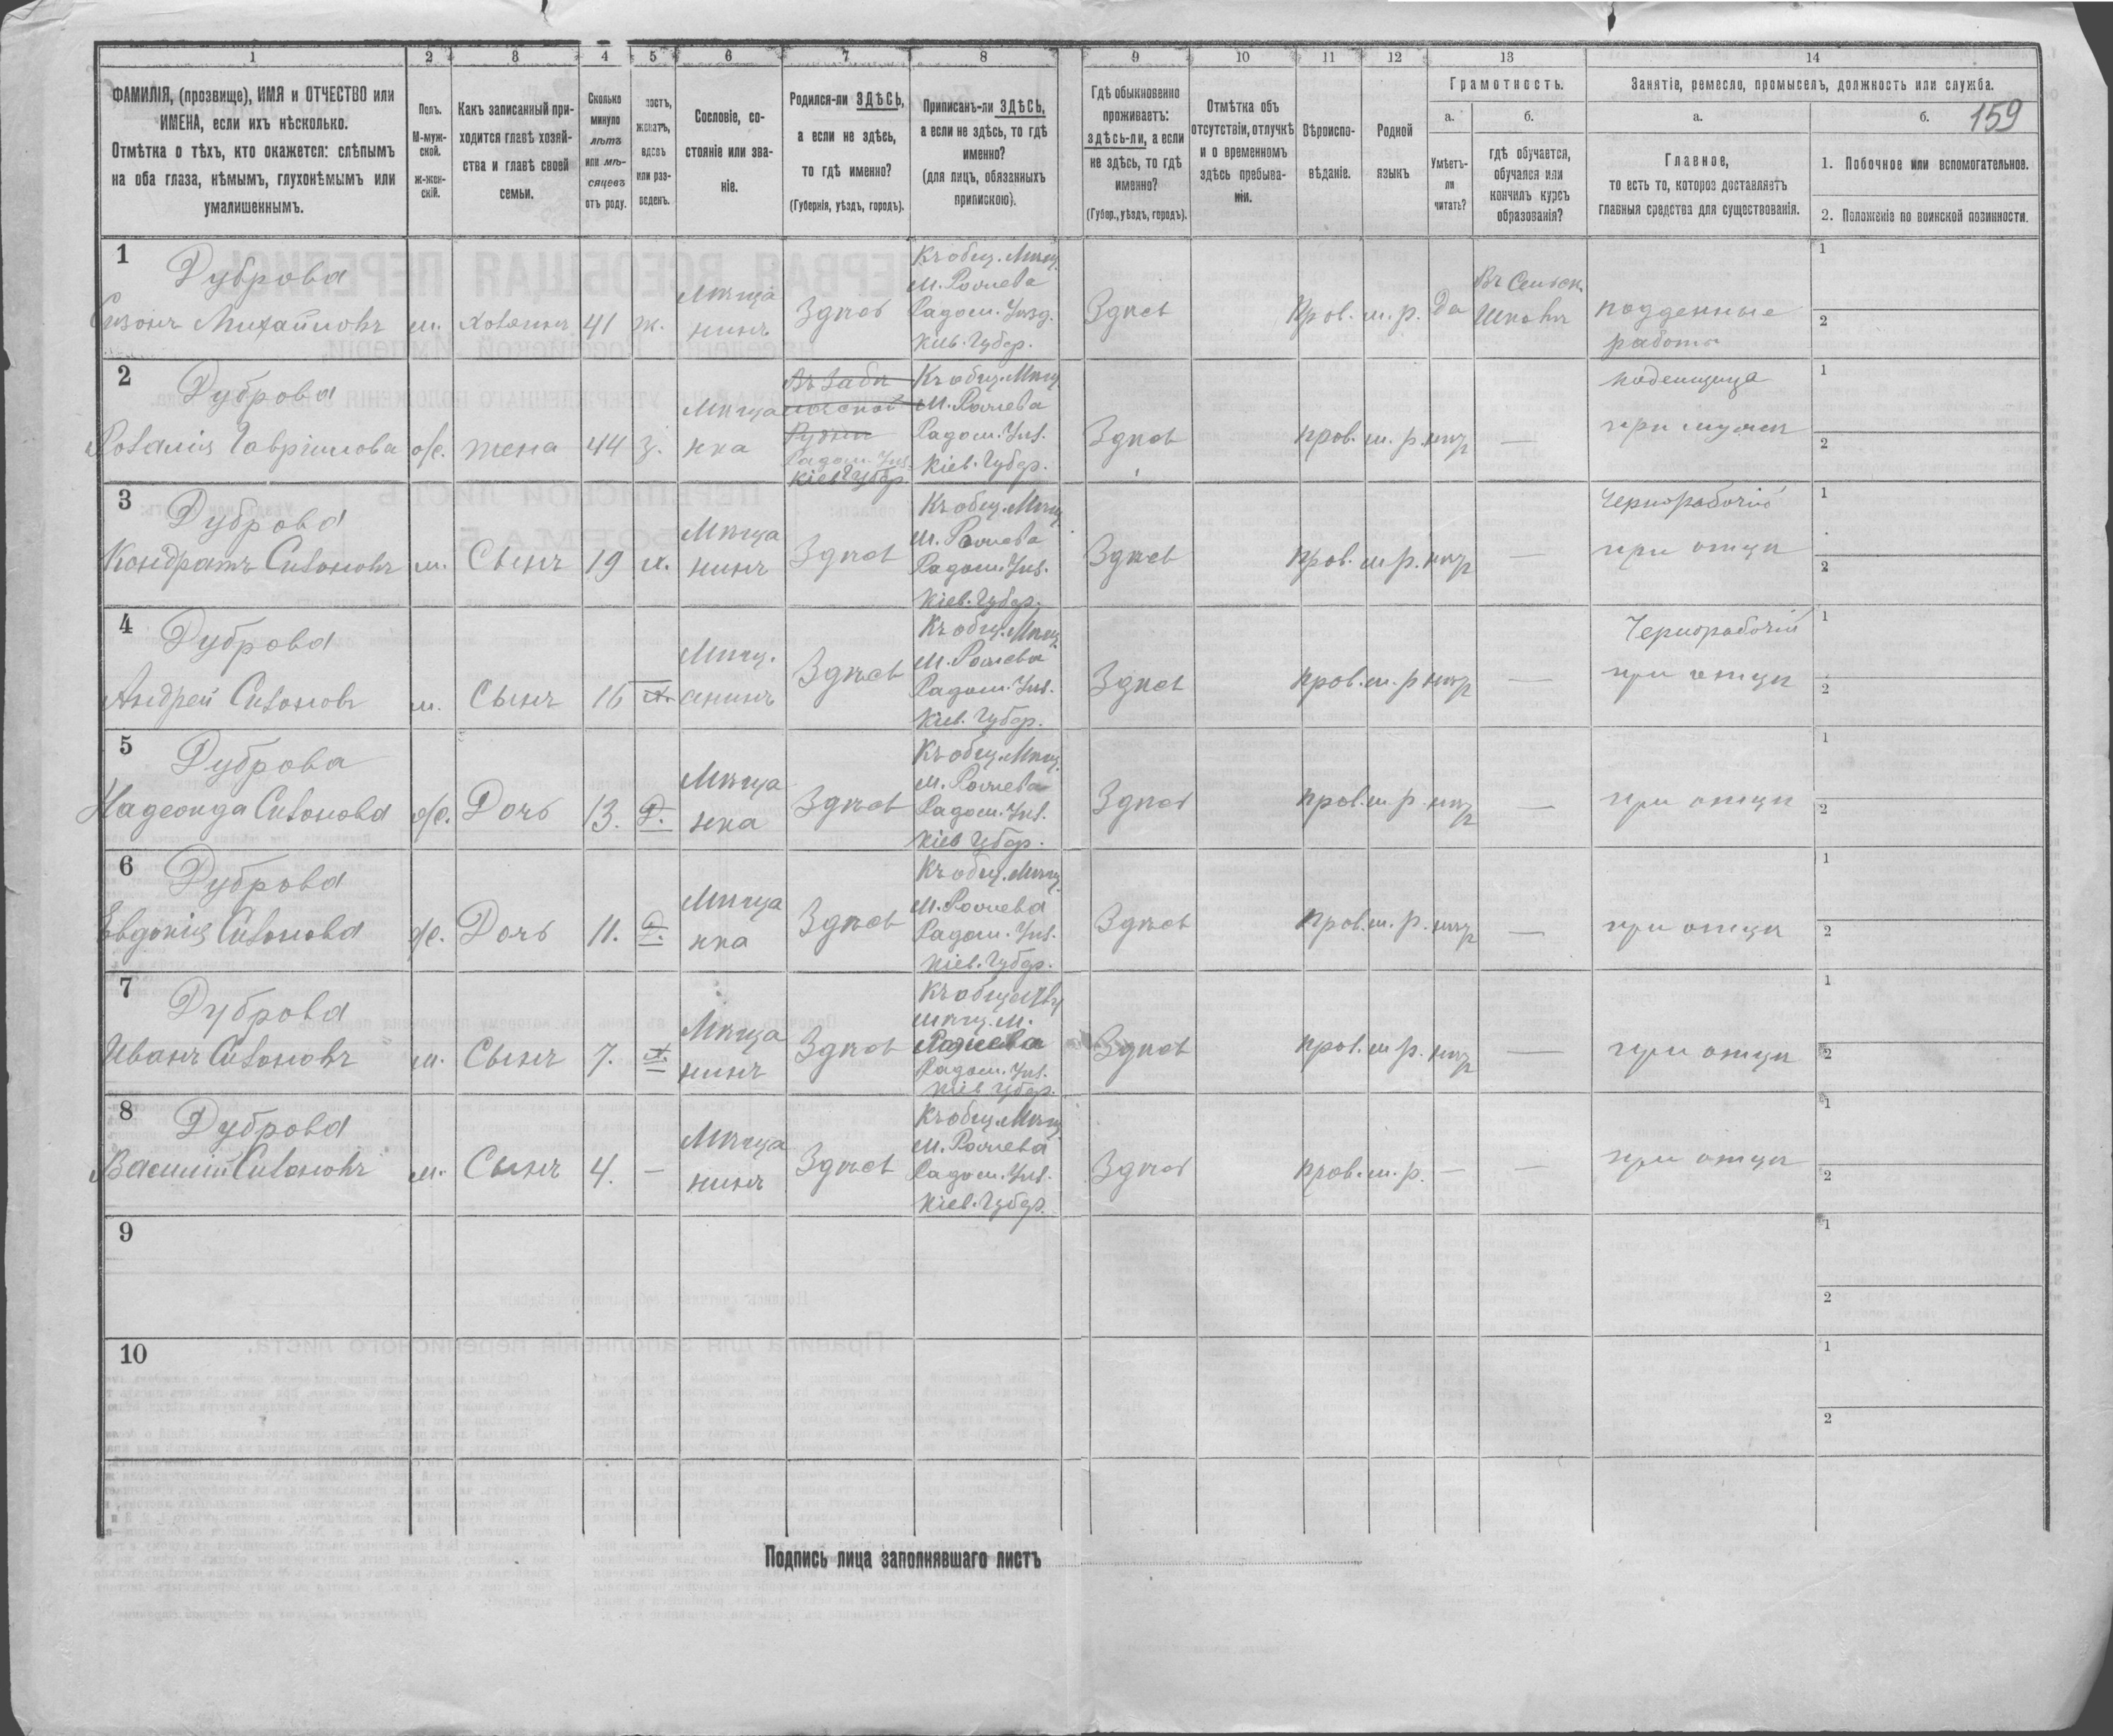 1 2 3 4 5 6 7 8 9 10 11 12 13 14
159
ФАМИЛІЯ, (прозвище), ИМЯ и ОТЧЕСТВО или
ИМЕНА, если ихъ нѣсколько.
Отмѣтка о тѣхъ, кто окажется: слѣпымъ
на оба глаза, нѣмымъ, глухонѣмымъ или
умалишеннымъ.
Полъ.
М-муж-
ской.
Ж-жен-
скій.
Какъ записанный при-
ходится главѣ хозяй-
ства и главѣ своей
семьи.
Сколько
минуло
лѣтъ
или мѣ-
сяцевъ
отъ роду.
лостъ,
женатъ,
вдовъ
или раз-
веденъ.
Сословіе, со-
стояніе или зва-
ніе.
Родился-ли ЗДѢСЬ,
а если не здѣсь,
то гдѣ именно?
(Губернія, уѣздъ, городъ).
Приписанъ-ли ЗДѢСЬ,
а если не здѣсь, то гдѣ
именно?
(для лицъ, обязанныхъ
припискою).
Гдѣ обыкновенно
проживаетъ:
здѣсь-ли, а если
не здѣсь, то гдѣ
именно?
(Губер., уѣздъ, городъ).
Отмѣтка объ
отсутствіи, отлучкѣ
и о временномъ
здѣсь пребыва-
ніи.
Вѣроиспо-
вѣданіе.
Родной
языкъ
Грамотность.
а.
Умѣетъ-
ли
читать?
б.
гдѣ обучается,
обучался или
кончилъ курсъ
образованія?
Занятіе, ремесло, промыселъ, должность или служба.
а.
Главное,
то есть то, которое доставляетъ
главныя средства для существованія.
б.
1. Побочное или вспомогательное.
2. Положеніе по воинской повинности.
1
Дуброва
Сизонъ Михайловъ
м.
Хозяинъ
41
ж.
Мѣща
нинъ
Здѣсь
Къ общ. Мѣщ.
м.
Радом. Уѣзд.
Кіев. Губер.
Здѣсь
Прав.
м. р.
Да
Въ Сельск.
Школѣ
подденные
работы
1
2
2
Дуброва
Розалія Гавріилова
ж.
жена
44
з.
Мѣща
нка
Радом. Уѣз.
Кіев Губер
Къ общ. Мѣщ
м.
Радом. Уѣз.
Кіев. Губер.
Здѣсь
прав.
м. р.
нѣт
—
поденщица
при мужѣ
1
2
3
Дуброва
Кондратъ Сизоновъ
м.
Сынъ
19
х.
Мѣща
нинъ
Здѣсь
Къ общ. Мѣщ
м.
Радом. Уѣз.
Кіев. Губер.
Здѣсь
прав.
м р.
нѣт
—
Чернорабочій
при отцѣ
1
2
4
Дуброва
Андрей Сизоновъ
м.
Сынъ
16
х.
Мѣщ.
анинъ
Здѣсь
Къ общ. Мѣщ.
м.
Радом. Уѣз.
Кіев. Губер.
Здѣсь
прав.
м. р
нѣт
—
Чернорабочій
при отцѣ
1
2
5
Дуброва
Надежда Сизонова
ж.
Дочь
13.
Д.
Мѣща
нка
Здѣсь
Къ общ. Мѣщ.
м.
Радом. Уѣз.
Кіев Губер.
Здѣсь
прав.
м. р.
нѣт
—
при отцѣ
1
2
6
Дуброва
Евдокія Сизонова
ж.
Дочь
11.
Д.
Мѣща
нка
Здѣсь
Къ общ. Мѣщ.
м.
Радом. Уѣз.
Кіев. Губер.
Здѣсь
Прав.
м. р.
нѣт
—
при отцѣ
1
2
7
Дуброва
Иванъ Сизоновъ
м.
Сынъ
7.
х.
Мѣща
нинъ
Здѣсь
Къ обществу
мѣщ. м.
Радом. Уѣз.
Кіев Губер.
Здѣсь
прав.
м р.
нѣт
—
при отцѣ
1
2
8
Дуброва
Василій Сизоновъ
м.
Сынъ
4.
—
Мѣща
нинъ
Здѣсь
Къ общ. Мѣщ
м.
Радом. Уѣз.
Кіев. Губер.
Здѣсь
прав.
м. р.
—
—
при отцѣ
1
2
9
1
2
10
1
2
Подпись лица заполнявшаго листъ